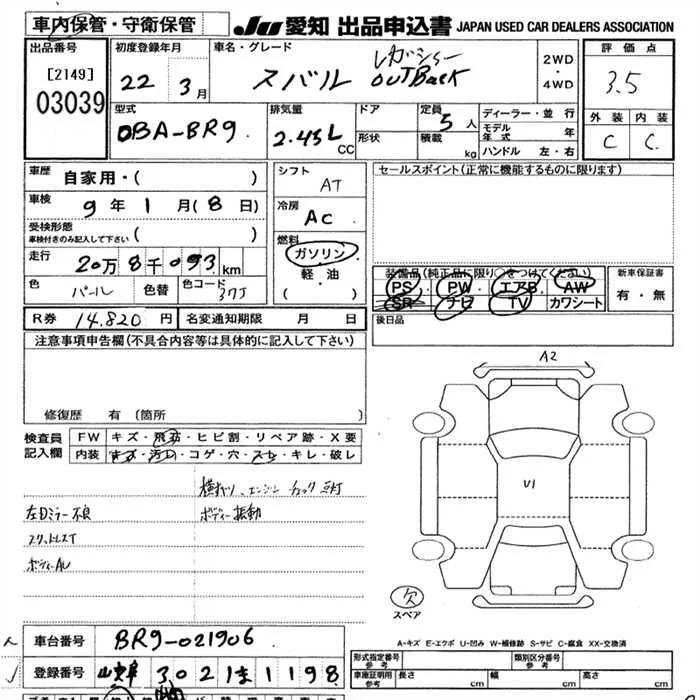 車内保管・守衛保管
JU 愛知 出品申込書 JAPAN USED CAR DEALERS ASSOCIATION
出品番号
[2149]
03039
初度登録年月
22 3月
車名・グレード
スバル レガシィー OUTBack
2WD
・
4WD
評価点
3.5
外装 内装
C C
型式
DBA-BR9
排気量
2.45L
CC
ドア
形状
定員
5人
積載
kg
ディーラー・並行
モデル年式 年
ハンドル 左・右
車歴
自家用・( )
車検
9年1月(8日)
受検形態
車検付きのみ記入して下さい ( )
走行
20万8千093km
色
パール
色替
色コード
37J
シフト
AT
冷房
AC
燃料
ガソリン
・
軽・油
( )
セールスポイント(正常に機能するものに限ります)
装備品(純正品に限り○をつけてください)
PS PW エアB AW
SR ナビ TV カワシート
新車保証書
有・無
後日品
R券 14,820円
名変通知期限 月 日
注意事項申告欄(不具合内容等は具体的に記入して下さい)
修復歴 有 (箇所 )
検査員
記入欄
FW キズ・飛石・ヒビ割・リペア跡・X要
内装 キズ・汚レ・コゲ・穴・スレ・キレ・破レ
エンジン チェック 点灯
左Dミラー不良
ボディー振動
A2
U1
欠
スペア
A-キズ E-エクボ U-凹み W-補修跡 S-サビ C-腐食 XX-交換済
車台番号
BR9-021906
登録番号
302 1198
形式指定番号
参考
類別区分番号
参考
車庫証明用
参考
長さ cm
幅 cm
高さ cm